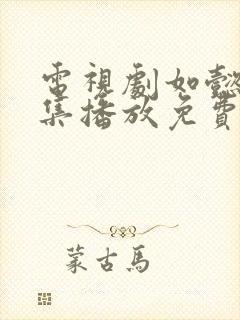 電視劇如懿
集播放免費
蒙古馬